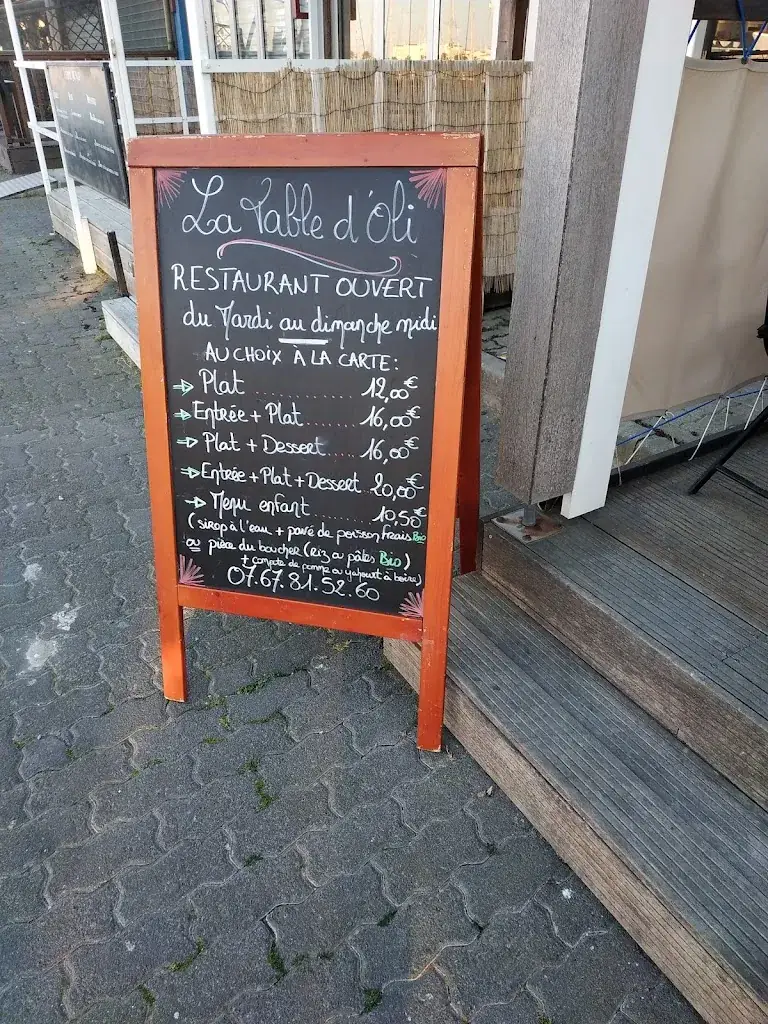 La Table d'Oli
RESTAURANT OUVERT
du Mardi au dimanche midi
AU CHOIX À LA CARTE:
→ Plat ............ 12,00€
→ Entrée + Plat ...... 16,00€
→ Plat + Dessert ..... 16,00€
→ Entrée + Plat + Dessert .. 20,00€
→ Menu enfant ........ 10,50€
(sirop à l'eau + pavé de poisson frais Bio
ou pièce du boucher (Riz ou pâtes Bio)
+ compote de pomme ou yahourt à boire)
07.67.81.52.60